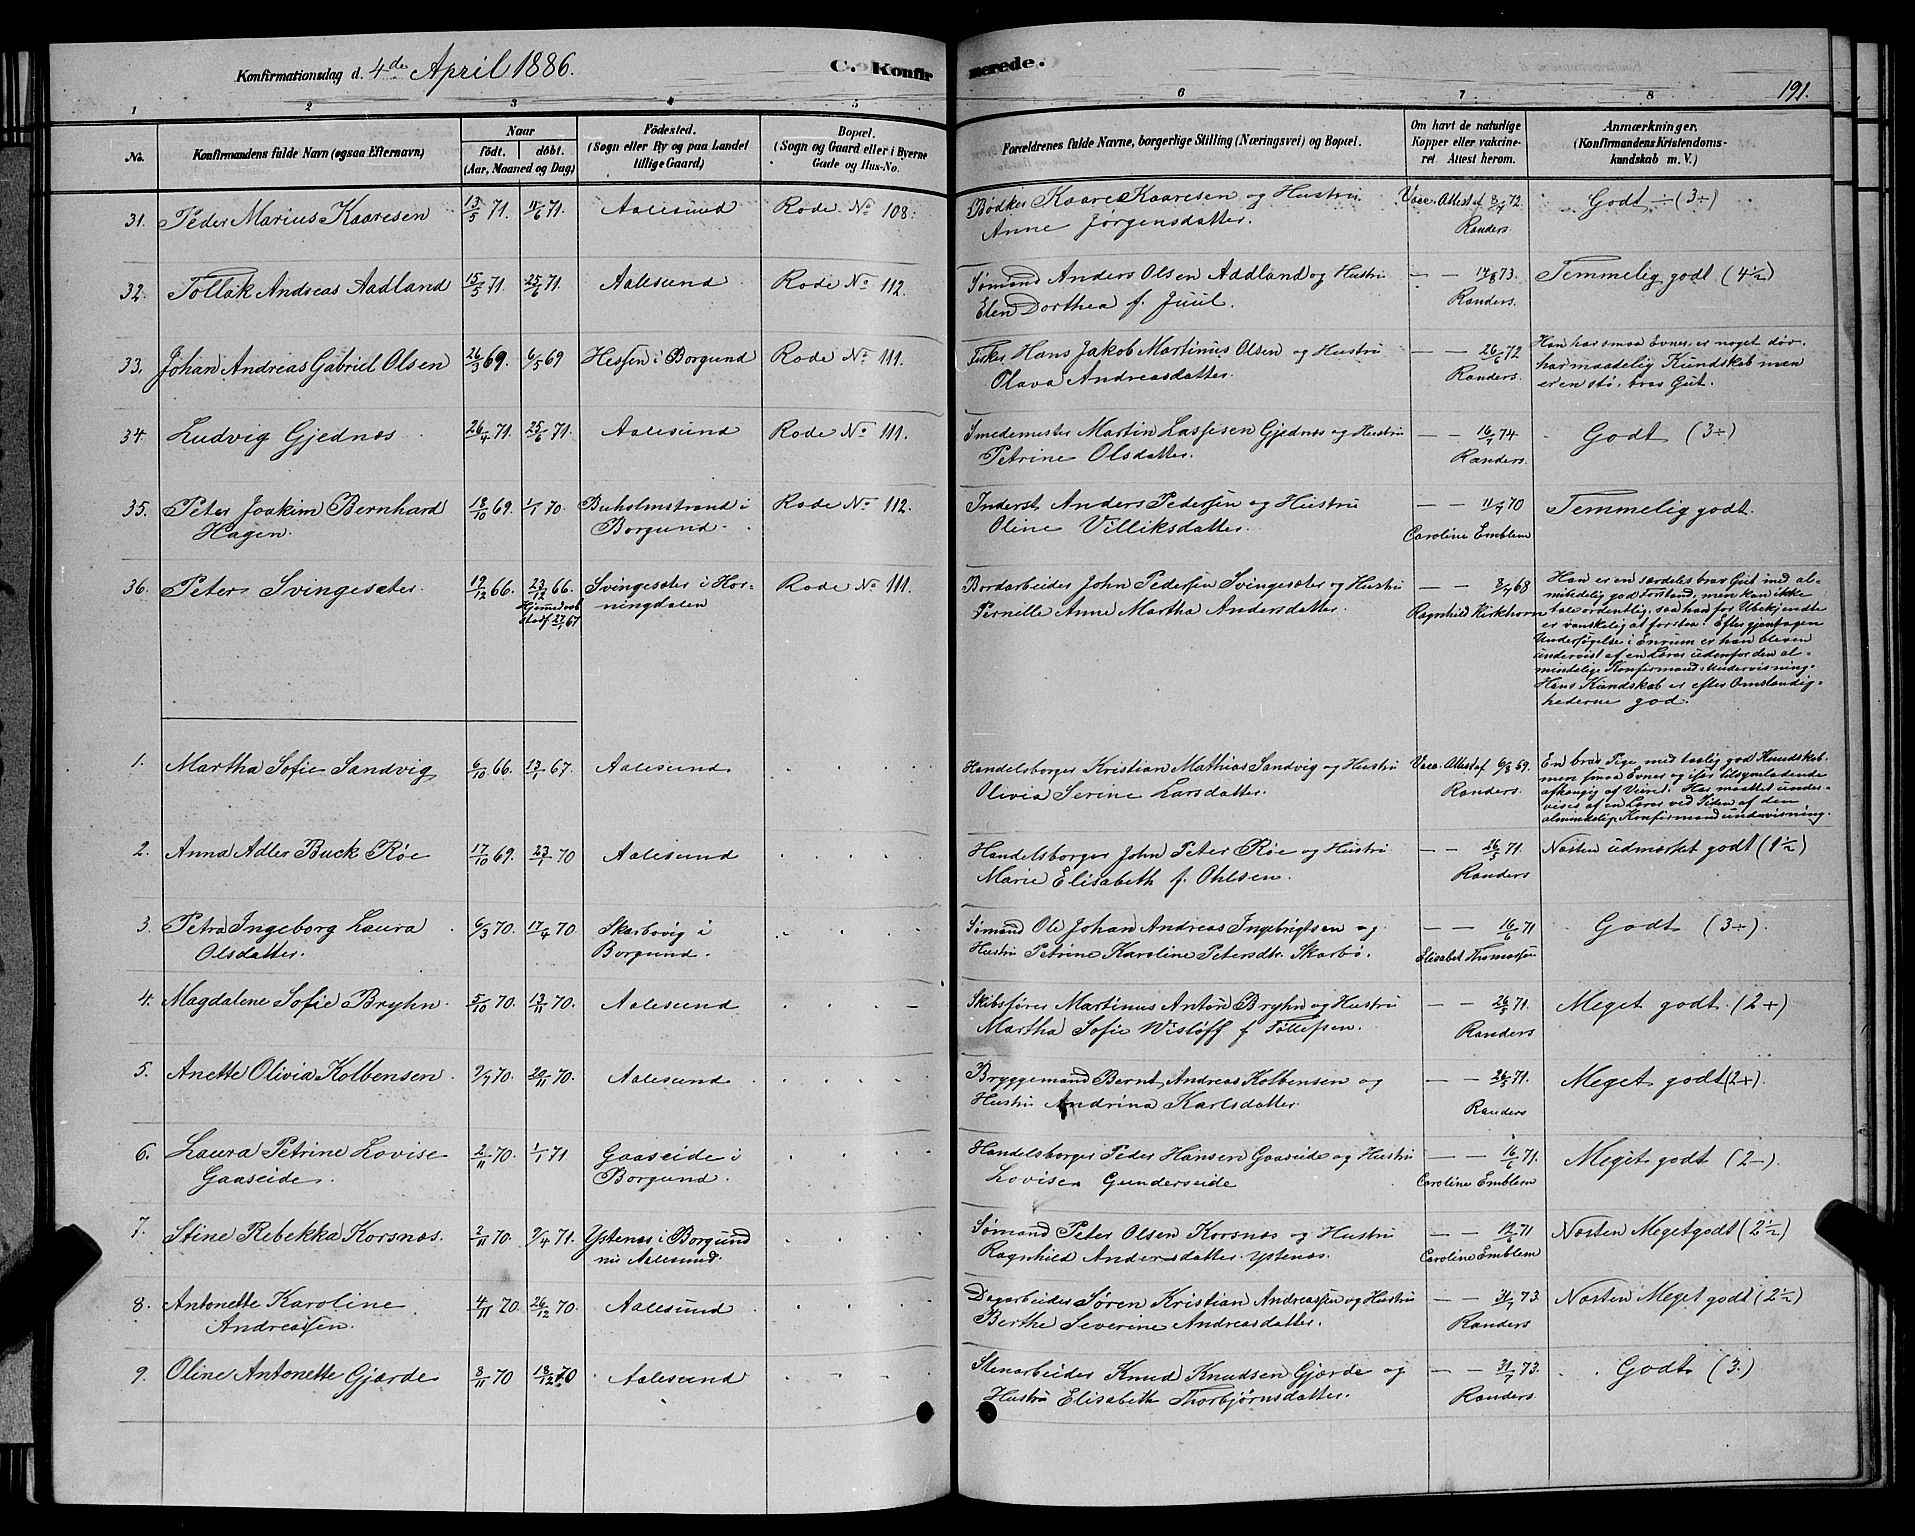 Konfirmationsdag d. 4de April 1886.
C. Konfirmerede.
191.
1 2 3 4 5 6 7 8
No. Konfirmandens fulde Navn (ogsaa Efternavn)
Naar født. døbt. (Aar, Maaned og Dag)
Fødested. (Sogn eller By og paa Landet tillige Gaard)
Bopæl. (Sogn og Gaard eller i Byerne Gade og Hus-No.
Forældrenes fulde Navne, borgerlige Stilling (Næringsvei) og Bopæl.
Om havt de naturlige Kopper eller vakcineret. Attest herom.
Anmærkninger. (Konfirmandens Kristendomskundskab m. V.)
31. Peder Marius Kaaresen 13/5 71. 11/6 71. Aalesund Rode No 108. Bødker Kaare Kaaresen og Hustru Vacc. Attest af 8/7 72. Godt ÷ (3÷)
Anne Jørgensdatter. Randers.
32. Tollak Andreas Aadland 15/5 71. 25/6 71. Aalesund Rode No 112. Sømand Anders Olsen Addland og Hustru — — 14/8 73. Temmelig godt (4½)
Elen Dorthea f. Juul. Randers.
33. Johan Andreas Gabriel Olsen 26/3 69. 6/5 69 Hessen i Borgund Rode No 111. Fisker Hans Jakob Martinus Olsen og Hustru — — 26/6 72 Han har smaa Evner, er noget døv,
Olava Andreasdatter. Randers. har maadelig Kundskab men
er en stø, brav Gut.
34. Ludvig Gjednæs 26/4 71. 25/6 71. Aalesund Rode No 111. Smedemester Martin Lassesen Gjednæs og Hustru — — 16/7 74 Godt (3÷)
Petrine Olsdatter. Randers.
35. Peter Joakim Bernhard 18/10 69. 1/1 70. Buholmstrand i Rode No 112. Inderst Anders Pedersen og Hustru — — 11/7 70 Temmelig godt.
Hagen. Borgund. Oline Villiksdatter. Caroline Emblem
36. Peter Svingesæter. 19/12 66. 23/12 66. Svingesæter i Hor- Rode No 111. Bordarbeider John Pedersen Svingesæter og Hustru — — 8/7 68 Han er en særdeles brav Gut med al-
Hjemmedøb Stadf. 27/1 67 ningdalen Pernille Anne Martha Andersdatter. Ragnhild Kirkhorn mindelig god Forstand, men kan ikke
tale ordentlig, saa han for Ubekjendte
er vanskelig at forstaa. Efter gjentagen
Undersøgelse i Enrum er han bleven
undervist af en Lærer udenfor den al-
mindelige Konfirmand-Undervisning.
Hans Kundskab er efter Omstændig-
hederne god.
1. Martha Sofie Sandvig 6/10 66. 13/1 67. Aalesund. Handelsborger Kristian Mathias Sandvig og Hustru Vacc. Attest af 6/8 69. En brav Pige med taalig god Kundskab
Olivia Serine Larsdatter. Randers. men smaa Evner og ifær tilsyneladende
afhængig af Veiret. Har maattet under-
vises af en Lærer ved Siden af den
almindelig Konfirmandundervisning.
2. Anna Adler Buck Røe 17/10 69. 23/1 70 Aalesund Handelsborger John Peter Røe og Hustru — — 26/5 71. Næsten udmærket godt (1½)
Marie Elisabeth f. Ohlsen. Randers
3. Petra Ingeborg Laura 6/3 70. 17/4 70 Skarbøvig i Sømand Ole Johan Andreas Ingebrigtsen og — — 16/6 71 Godt (3÷).
Olsdatter. Borgund. Hustru Petrine Karoline Petersdtr. Skarbø. Elisabet Thomassen
4. Magdalene Sofie Bryhn 5/10 70. 13/11 70. Aalesund Skibsfører Martinus Anton Bryhn og Hustru — — 26/5 71. Meget godt. (2+)
Martha Sofie Wisløff f. Tollefsen. Randers
5. Anette Olivia Kolbensen 9/7 70. 20/11 70. Aalesund Bryggemand Bernt Andreas Kolbensen og — — 26/5 71. Meget godt (2+).
Hustru Andrina Karlsdatter. Randers
6. Laura Petrine Lovise 2/11 70. 1/1 71 Gaaseide i Handelsborger Peder Hansen Gaaseide og Hustru — — 16/6 71. Meget godt (2-).
Gaaseide. Borgund. Lovise Gunderseide Caroline Emblem
7. Stine Rebekka Korsnæs. 2/11 70. 9/4 71. Ystenæs i Borgund Sømand Peter Olsen Korsnæs og Hustru — — 12/6 71 Næsten Meget godt (2½)
nu Aalesund. Ragnhild Andersdatter Ystenæs. Caroline Emblem
8. Antonette Karoline 4/11 70. 26/12 70. Aalesund Dagarbeider Søren Kristian Andreassen og Hustru — — 31/7 73. Næsten Meget godt (2½)
Andreassen. Berthe Severine Andreasdatter. Randers
9. Oline Antonette Gjærde 8/11 70 18/12 70 Aalesund Stenarbeider Knud Knudsen Gjærde og — — 31/7 73. Godt (3.)
Hustru Elisabeth Thorbjørnsdatter. Randers.